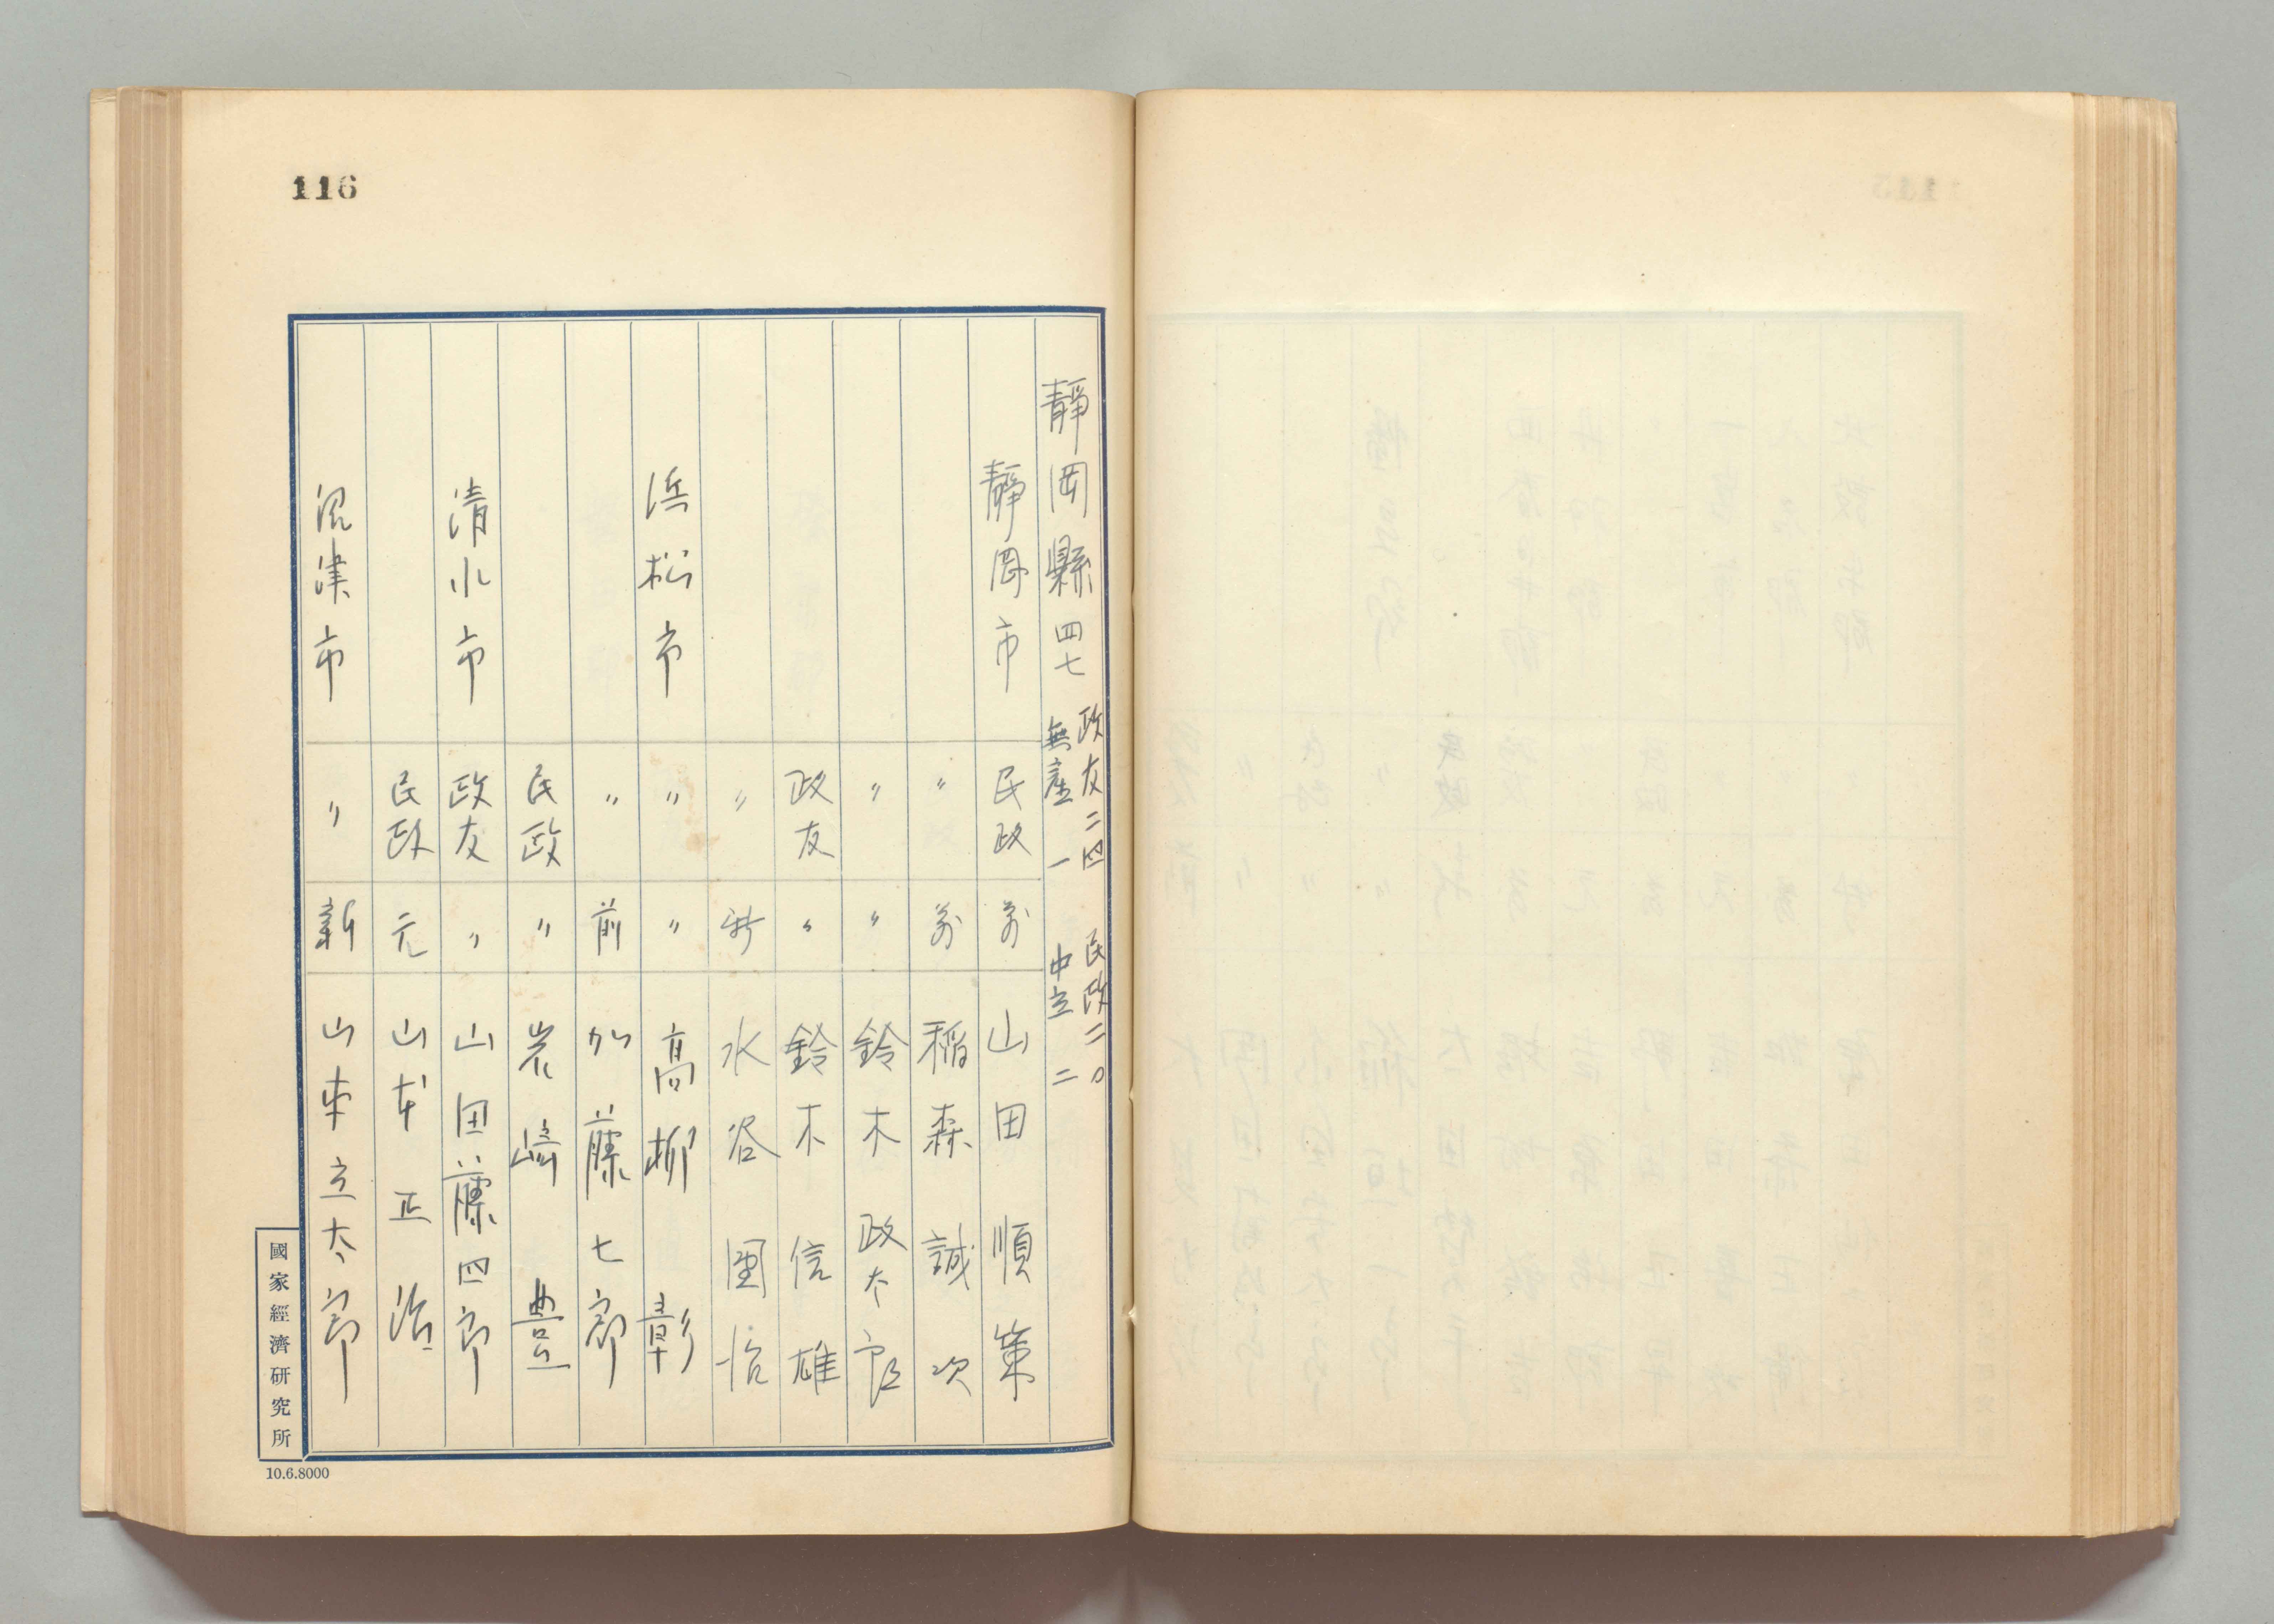 116
靜岡縣 四七 政友二四 民政二〇 無產一 中立二
靜岡市 民政 前 山田順策
〃 前 稲森誠次
〃 〃 鈴木政太郎
政友 〃 鈴木信雄
〃 新 水谷
浜松市 〃 〃 高柳彰
〃 前 加藤七郎
民政 〃 岩崎豊
清水市 政友 〃 山田藤四郎
民政 元 山本正治
沼津市 〃 新 山本立太郎
國家經濟研究所
10.6.8000